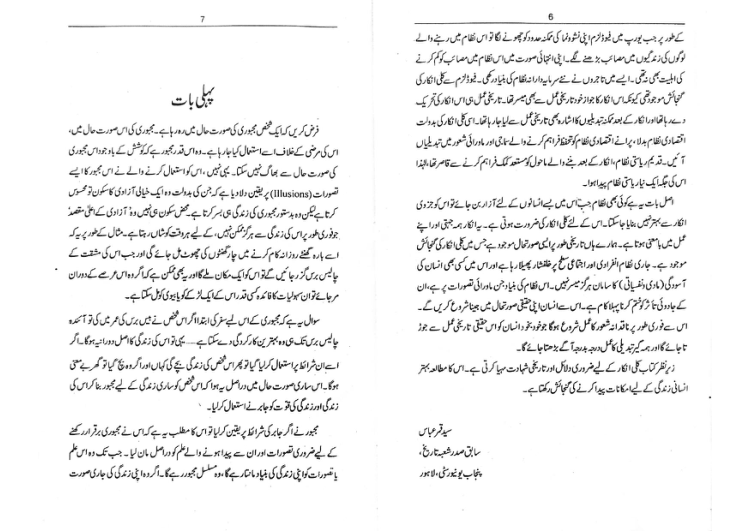 6
کے طور پر جب یورپ میں فیوڈلزم اپنی نشوونما کی ممکنہ حدود کو چھونے لگا تو اس نظام میں رہنے والے
لوگوں کی زندگیوں میں مصائب بڑھنے لگے۔ اپنی انتہائی صورت میں اس نظام میں مصائب کو کم کرنے
کی اہلیت بھی نہ تھی۔ ایسے میں تاجروں نے نئے سرمایہ دارانہ نظام کی بنیاد رکھی۔ فیوڈلزم سے کلی انکار کی
گنجائش موجود تھی کیونکہ اس انکار کا جواز خود تاریخی عمل سے بھی میسر تھا۔ تاریخی عمل ہی اس انکار کی تحریک
دے رہا تھا اور انکار کے بعد ممکنہ تبدیلیوں کا اشارہ بھی تاریخی عمل سے لیا جا رہا تھا۔ اسی کلی انکار کی بدولت
اقتصادی نظام بدلا، پرانے اقتصادی نظام کو تحفظ فراہم کرنے والے سماجی اور ماورائی شعور میں تبدیلیاں
آئیں۔ قدیم ریاستی نظام، انکار کے بعد بننے والے ماحول کو مستعد کمک فراہم کرنے سے قاصر تھا، لہٰذا
اس کی جگہ ایک نیا ریاستی نظام پیدا ہوا۔
اصل بات یہ ہے کوئی بھی نظام جب اس میں بسے انسانوں کے لئے آزار بن جائے تو اس کو جزوی
انکار سے بہتر نہیں بنایا جاسکتا۔ اس کے لئے کلی انکار کی ضرورت ہوتی ہے۔ یہ انکار ہمہ جہتی اور اپنے
عمل میں بامعنی ہوتا ہے۔ ہمارے ہاں تاریخی طور پر ایسی صورتحال موجود ہے جس میں کلی انکار کی گنجائش
موجود ہے۔ جاری نظام انفرادی اور اجتماعی سطح پر خلفشار پھیلا رہا ہے اور اس میں کسی بھی انسان کی
آسودگی (مادی/نفسیاتی) کا سامان ہرگز میسر نہیں۔ اس نظام کی بنیاد جن ماورائی تصورات پر ہے، ان
کے جادوئی تاثر کو ختم کرنا پہلا کام ہے۔ اس سے انسان اپنی حقیقی صورتحال میں جینا شروع کریں گے۔
اس سے فوری طور پر ناقدانہ شعور کا عمل شروع ہوگا جو خود بخود انسان کو اس حقیقی تاریخی عمل سے جوڑ
تا جائے گا اور ہمہ گیر تبدیلی کا عمل درجہ بدرجہ آگے بڑھتا جائے گا۔
زیر نظر کتاب کلی انکار کے لیے ضروری دلائل اور تاریخی شہادت مہیا کرتی ہے۔ اس کا مطالعہ بہتر
انسانی زندگی کے لیے امکانات پیدا کرنے کی گنجائش رکھتا ہے۔
سید قمر عباس
سابق صدر شعبہ تاریخ،
پنجاب یونیورسٹی، لاہور
7
پہلی بات
فرض کریں کہ ایک شخص مجبوری کی صورت حال میں رہ رہا ہے۔ مجبوری کی اس صورت حال میں،
اس کی مرضی کے خلاف اسے استعمال کیا جا رہا ہے۔ وہ اس قدر مجبور ہے کہ کوشش کے باوجود اس مجبوری
کی صورت حال سے بھاگ نہیں سکتا۔ یہی نہیں، اس کو استعمال کرنے والے نے اس مجبور کا ایسے
تصورات (Illusions) پر یقین دلا دیا ہے کہ جن کی بدولت وہ ایک خیالی آزادی کا سکون تو محسوس
کرتا ہے لیکن وہ بدستور مجبوری کی زندگی ہی بسر کرتا ہے۔ محض سکون ہی نہیں وہ آزادی کے اعلیٰ مقصد
جو فوری طور پر اس کی زندگی سے ہرگز ممکن نہیں، کے لیے ہر وقت کوشاں رہتا ہے۔ مثال کے طور پر یہ کہ
اسے بارہ گھنٹے روزانہ کام کرنے میں چار گھنٹوں کی چھوٹ مل جائے گی اور جب اس کی مشقت کے
چالیس برس گزر جائیں گے تو اس کو ایک مکان ملے گا اور یہ بھی ممکن ہے کہ اگر وہ اس عرصے کے دوران
مر جائے تو ان سہولیات کا فائدہ کسی قدر اس کے ایک لڑکے کو یا بیوی کو مل سکتا ہے۔
سوال یہ ہے کہ مجبوری کے اس لیے سفر کی ابتدا اگر اس شخص نے بیس برس کی عمر میں کی تو آئندہ
چالیس برس تک ہی وہ بہترین کارکردگی دے سکتا ہے...... یہی تو اس کی زندگی کا اصل دورانیہ ہوگا۔ اگر
اسے ان شرائط پر استعمال کر لیا گیا تو پھر اس شخص کی زندگی بچے گی کہاں اور اگر وہ بچ گیا تو گھر بے معنی
ہوگا۔ اس ساری صورت حال میں دراصل یہ ہوا کہ اس شخص کو ساری زندگی کے لیے مجبور بنا کر اس کی
زندگی اور زندگی کی قوت کو جابر نے استعمال کر لیا۔
مجبور نے اگر جابر کی شرائط پر یقین کر لیا تو اس کا مطلب یہ ہے کہ اس نے مجبوری برقرار رکھنے
کے لیے ضروری تصورات اور ان سے پیدا ہونے والے علم کو دراصل مان لیا۔ جب تک وہ اس علم
یا تصورات کو اپنی زندگی کی بنیاد مانتا رہے گا، وہ مسلسل مجبور رہے گا۔ اگر وہ اپنی زندگی کی جاری صورت